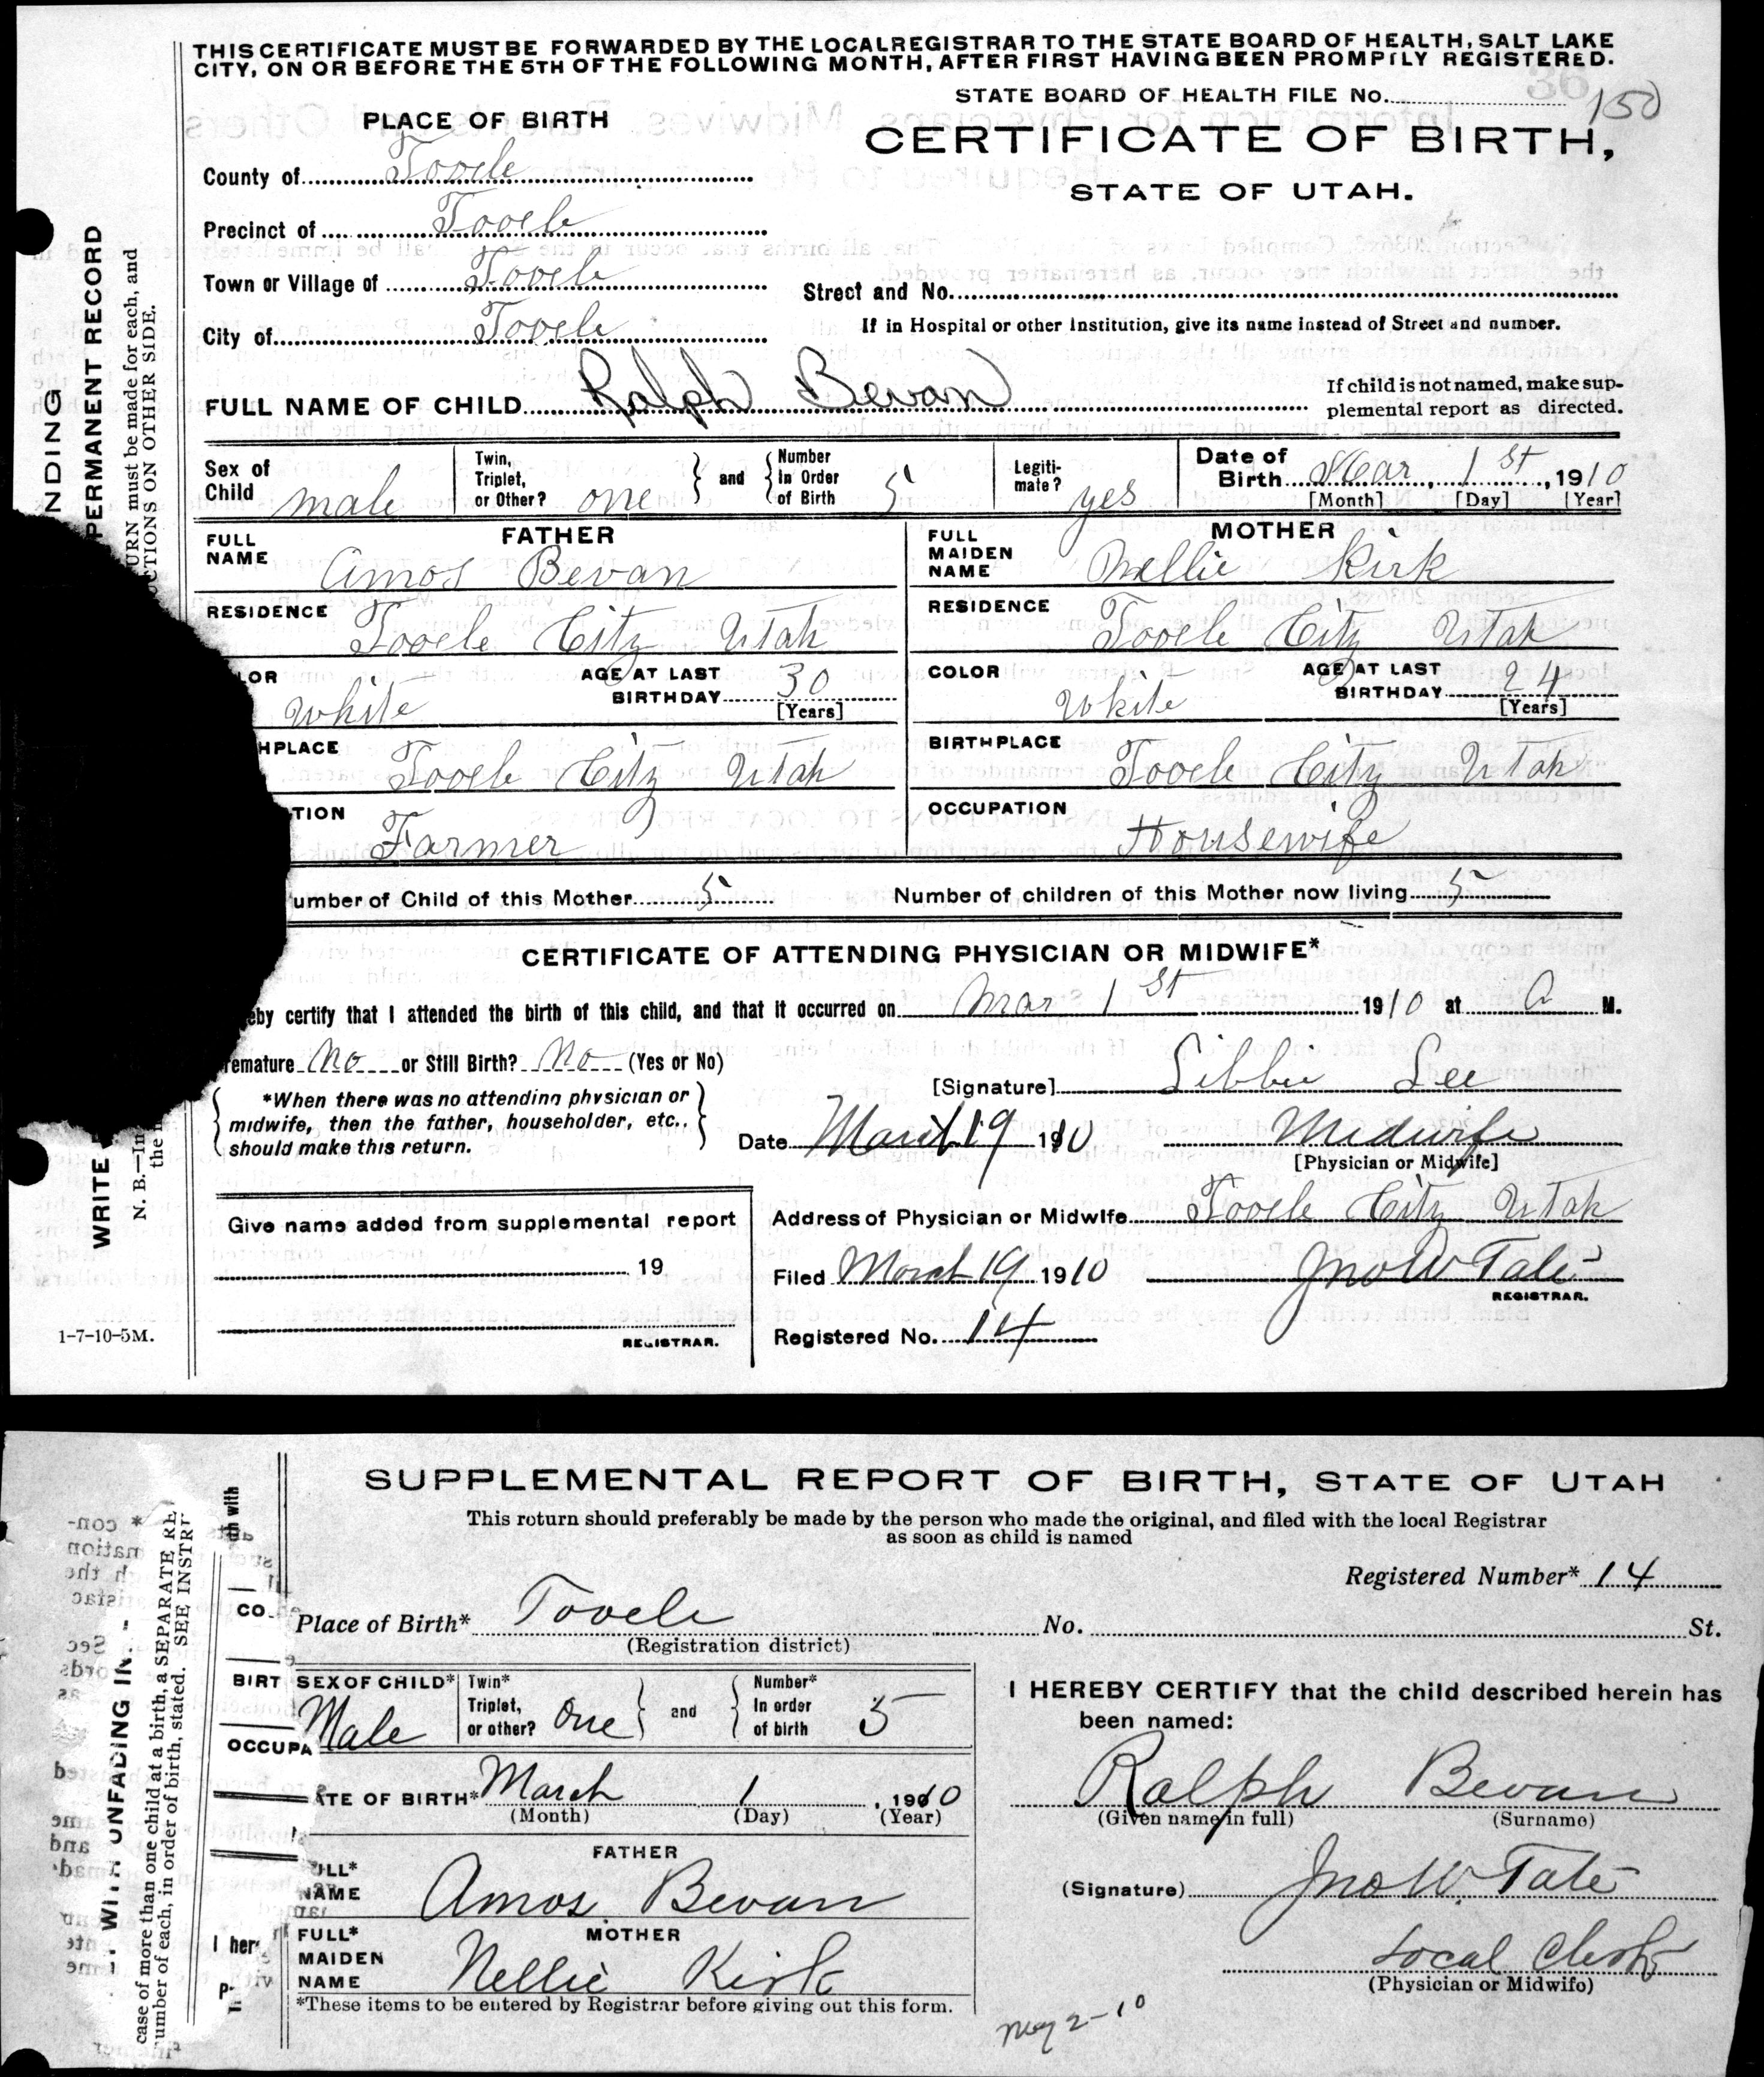 THIS CERTIFICATE MUST BE FORWARDED BY THE LOCAL REGISTRAR TO THE STATE BOARD OF HEALTH, SALT LAKE
CITY, ON OR BEFORE THE 5TH OF THE FOLLOWING MONTH, AFTER FIRST HAVING BEEN PROMPTLY REGISTERED.
STATE BOARD OF HEALTH FILE No. 36 150
PLACE OF BIRTH
CERTIFICATE OF BIRTH,
STATE OF UTAH.
County of Tooele
Precinct of Tooele
Town or Village of Tooele
Street and No.
City of Tooele
If in Hospital or other Institution, give its name instead of Street and number.
FULL NAME OF CHILD Ralph Bevan
If child is not named, make sup-
plemental report as directed.
Sex of Child male
Twin, Triplet, or Other? one and Number In Order of Birth 5
Legiti-mate? yes
Date of Birth Mar 1st, 1910
[Month] [Day] [Year]
FATHER
FULL NAME Amos Bevan
RESIDENCE Tooele City Utah
LOR White
AGE AT LAST BIRTHDAY 30 [Years]
HPLACE Tooele City Utah
TION Farmer
MOTHER
FULL MAIDEN NAME Nellie Kirk
RESIDENCE Tooele City Utah
COLOR White
AGE AT LAST BIRTHDAY 24 [Years]
BIRTHPLACE Tooele City Utah
OCCUPATION Housewife
umber of Child of this Mother 5 Number of children of this Mother now living 5
CERTIFICATE OF ATTENDING PHYSICIAN OR MIDWIFE*
eby certify that I attended the birth of this child, and that it occurred on Mar 1st 1910 at A M.
remature No or Still Birth? No (Yes or No)
*When there was no attending physician or
midwife, then the father, householder, etc.,
should make this return.
[Signature] Libbie Lee
Date March 19 1910 Midwife
[Physician or Midwife]
Give name added from supplemental report
19
REGISTRAR.
Address of Physician or Midwife Tooele City Utah
Filed March 19 1910 Jno W Tate
REGISTRAR.
Registered No. 14
1-7-10-5M.
NDING
PERMANENT RECORD
URN must be made for each, and
CTIONS ON OTHER SIDE.
WRITE
N. B.—In
the n
SUPPLEMENTAL REPORT OF BIRTH, STATE OF UTAH
This return should preferably be made by the person who made the original, and filed with the local Registrar
as soon as child is named
Registered Number* 14
Place of Birth* Tooele No. St.
(Registration district)
SEX OF CHILD* Male
Twin* Triplet, or other? One and Number* In order of birth 5
ATE OF BIRTH* March 1, 1910
(Month) (Day) (Year)
FATHER
ULL* NAME Amos Bevan
MOTHER
FULL* MAIDEN NAME Nellie Kirk
*These items to be entered by Registrar before giving out this form.
I HEREBY CERTIFY that the child described herein has
been named:
Ralph Bevan
(Given name in full) (Surname)
(Signature) Jno W. Tate
Local Clerk
(Physician or Midwife)
May 2-10
WITH UNFADING IN
case of more than one child at a birth, a SEPARATE RE
umber of each, in order of birth, stated. SEE INSTR
th with
CO
BIRT
OCCUPA
I her
P